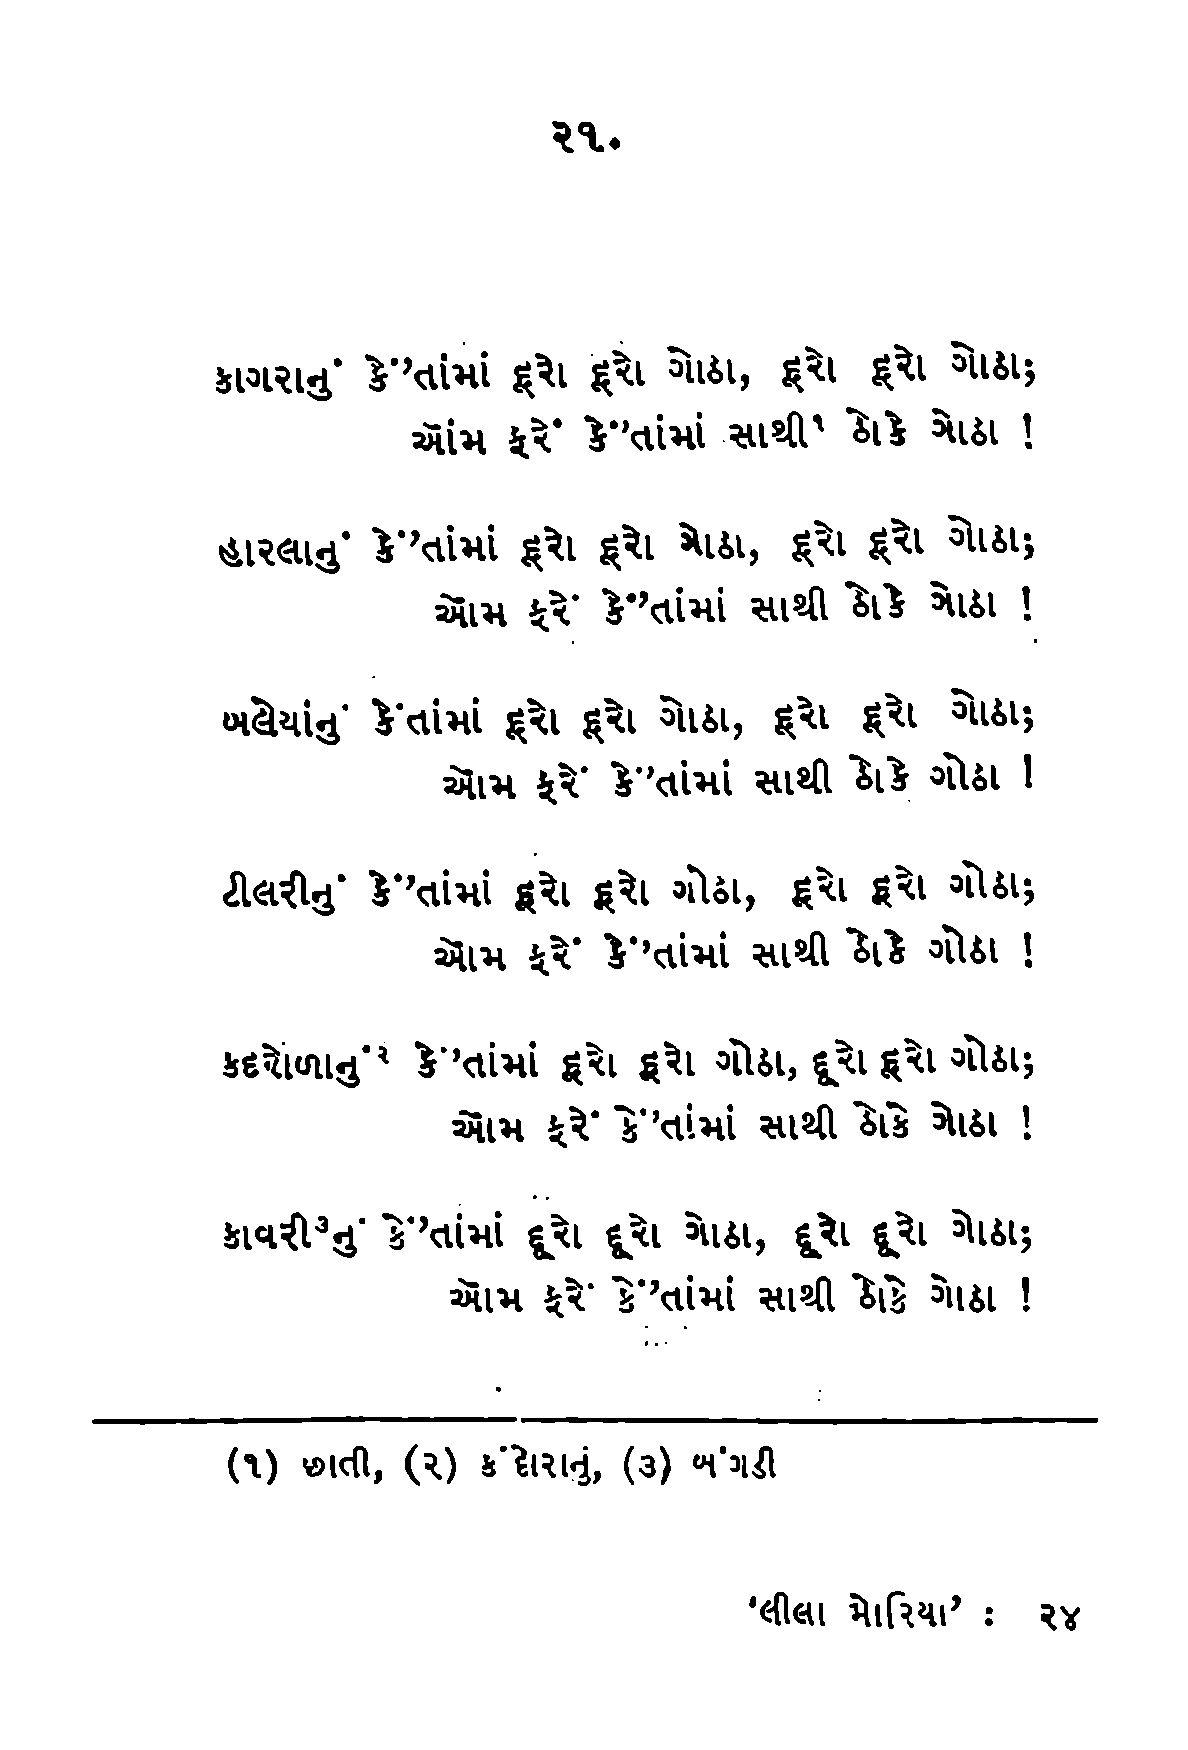 ૨૧.
કાગરાનું કે'તાંમાં દૂરો દૂરો ગોઠા, દૂરો દૂરો ગોઠા;
ઑમ ફરેં કે'તાંમાં સાથી૧ ઠોકે ગોઠા !
હારલાનું કે'તાંમાં દૂરો દૂરો ગોઠા, દૂરો દૂરો ગોઠા;
ઑમ ફરેં કે'તાંમાં સાથી ઠોકે ગોઠા !
બલૈયાંનું કે'તાંમાં દૂરો દૂરો ગોઠા, દૂરો દૂરો ગોઠા;
ઑમ ફરેં કે'તાંમાં સાથી ઠોકે ગોઠા !
ટીલરીનું કે'તાંમાં દૂરો દૂરો ગોઠા, દૂરો દૂરો ગોઠા;
ઑમ ફરેં કે'તાંમાં સાથી ઠોકે ગોઠા !
કદરોળાનું૨ કે'તાંમાં દૂરો દૂરો ગોઠા, દૂરો દૂરો ગોઠા;
ઑમ ફરેં કે'તાંમાં સાથી ઠોકે ગોઠા !
કાવરી૩નું કે'તાંમાં દૂરો દૂરો ગોઠા, દૂરો દૂરો ગોઠા;
ઑમ ફરેં કે'તાંમાં સાથી ઠોકે ગોઠા !
(૧) છાતી, (૨) કંદોરાનું, (૩) બંગડી
'લીલા મોરિયા' : ૨૪